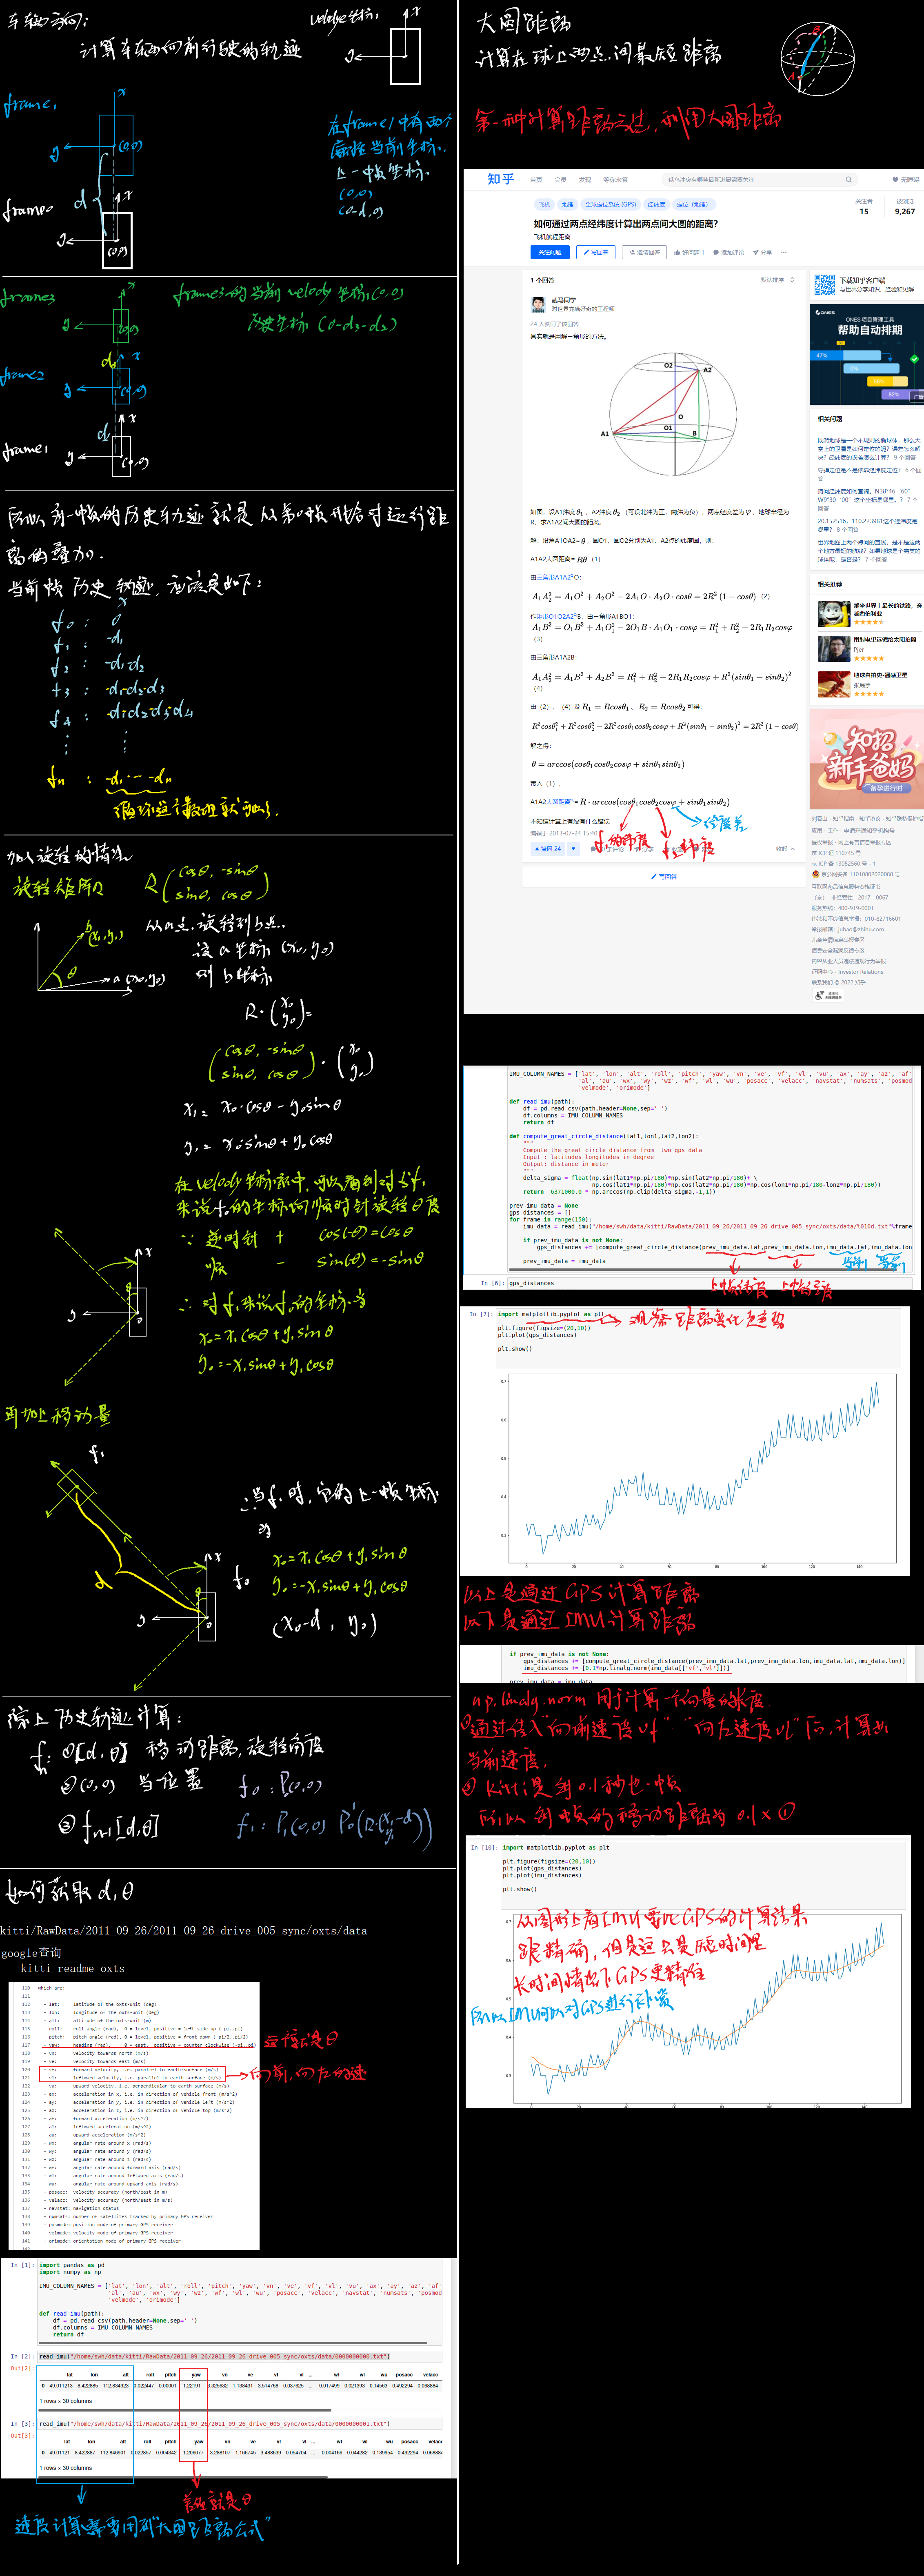 计算车在向前行驶的轨迹
velody坐标:
x
y
frame1
x
y
(0,0)
d
frame0
x
y
(0,0)
在frame1中有两个
上一中央坐标:
(0,0)
(0-d,0)
frame3
x
y
(0,0)
frame3的当前velody坐标(0,0)
历史坐标 (0-d3-d2)
frame2
x
y
(0,0)
d
frame1
x
y
(0,0)
所以每一帧的历史轨迹就是从第0帧开始对运行距
离的叠加.
当前帧历史轨迹,应该是如下:
f0 : 0
f1 : -d1
f2 : -d1-d2
f3 : -d1-d2-d3
fn : -d1...-dn
加入旋转的情况
旋转矩阵R
R(cosθ, -sinθ
sinθ, cosθ)
b(x1,y1)
θ
a(x0,y0)
从a点旋转到b点.
设a坐标(x0,y0)
则b坐标
R·(x0
y0)=
(cosθ, -sinθ
sinθ, cosθ)·(x0
y0)
x1= x0·cosθ-y0sinθ
y1= x0·sinθ+y0cosθ
来说f0的坐标向顺时针旋转θ度
∵ 逆时针 + cos(θ)=cosθ
- sin(θ)=-sinθ
∴ 对f1来说f0的坐标为
x0=x1cosθ+y1sinθ
y0=-x1sinθ+y1cosθ
再加上移动量
f1
d
f0
∴当f1时,它的上一帧坐标
为
x0=x1cosθ+y1sinθ
y0=-x1sinθ+y1cosθ
(x0-d, y0)
综上历史轨迹计算:
fn: ①[d,θ] 移动距离,旋转角度
②(0,0) 当位置
f0: P(0,0)
③fn-1[d,θ]
如何获取d,θ
kitti/RawData/2011_09_26/2011_09_26_drive_005_sync/oxts/data
google查询
kitti readme oxts
110 which are:
111
112 - lat: latitude of the oxts-unit (deg)
113 - lon: longitude of the oxts-unit (deg)
114 - alt: altitude of the oxts-unit (m)
115 - roll: roll angle (rad), 0 = level, positive = left side up (-pi..pi)
116 - pitch: pitch angle (rad), 0 = level, positive = front down (-pi/2..pi/2)
117 - yaw: heading (rad), 0 = east, positive = counter clockwise (-pi..pi)
118 - vn: velocity towards north (m/s)
119 - ve: velocity towards east (m/s)
120 - vf: forward velocity, i.e. parallel to earth-surface (m/s)
121 - vl: leftward velocity, i.e. parallel to earth-surface (m/s)
122 - vu: upward velocity, i.e. perpendicular to earth-surface (m/s)
123 - ax: acceleration in x, i.e. in direction of vehicle front (m/s^2)
124 - ay: acceleration in y, i.e. in direction of vehicle left (m/s^2)
125 - az: acceleration in z, i.e. in direction of vehicle top (m/s^2)
126 - af: forward acceleration (m/s^2)
127 - al: leftward acceleration (m/s^2)
128 - au: upward acceleration (m/s^2)
129 - wx: angular rate around x (rad/s)
130 - wy: angular rate around y (rad/s)
131 - wz: angular rate around z (rad/s)
132 - wf: angular rate around forward axis (rad/s)
133 - wl: angular rate around leftward axis (rad/s)
134 - wu: angular rate around upward axis (rad/s)
135 - posacc: velocity accuracy (north/east in m)
136 - velacc: velocity accuracy (north/east in m/s)
137 - navstat: navigation status
138 - numsats: number of satellites tracked by primary GPS receiver
139 - posmode: position mode of primary GPS receiver
140 - velmode: velocity mode of primary GPS receiver
141 - orimode: orientation mode of primary GPS receiver
In [1]: import pandas as pd
import numpy as np
IMU_COLUMN_NAMES = ['lat', 'lon', 'alt', 'roll', 'pitch', 'yaw', 'vn', 've', 'vf', 'vl', 'vu', 'ax', 'ay', 'az', 'af'
'al', 'au', 'wx', 'wy', 'wz', 'wf', 'wl', 'wu', 'posacc', 'velacc', 'navstat', 'numsats', 'posmod
'velmode', 'orimode']
def read_imu(path):
df = pd.read_csv(path,header=None,sep=' ')
df.columns = IMU_COLUMN_NAMES
return df
In [2]: read_imu("/home/swh/data/kitti/RawData/2011_09_26/2011_09_26_drive_005_sync/oxts/data/0000000000.txt")
Out[2]:
lat lon alt roll pitch yaw vn ve vf vl ... wf wl wu posacc velacc
0 49.011213 8.422885 112.834923 0.022447 0.00001 -1.22191 -3.325632 1.138431 3.514768 0.037625 ... -0.017499 0.021393 0.14563 0.492294 0.068884
1 rows × 30 columns
In [3]: read_imu("/home/swh/data/kitti/RawData/2011_09_26/2011_09_26_drive_005_sync/oxts/data/0000000001.txt")
Out[3]:
lat lon alt roll pitch yaw vn ve vf vl ... wf wl wu posacc velacc
0 49.01121 8.422887 112.846901 0.022857 0.004342 -1.206077 -3.288107 1.166745 3.488639 0.054704 ... -0.004166 0.004282 0.139954 0.492294 0.06888
1 rows × 30 columns
速度计算需要用到"大圆距离公式"
大圆距离
计算在球上两点间最短距离
A
B
第一种计算距离方法,利用大圆距离
知乎
首页 会员 发现 等你来答
无障碍
飞机 地理 全球定位系统 (GPS) 经纬度 定位（地理）
关注者
15
被浏览
9,267
如何通过两点经纬度计算出两点间大圆的距离?
飞机航程距离
关注问题 写回答 邀请回答 好问题 1 添加评论 分享 ...
1 个回答
默认排序
武马同学
对世界充满好奇的工程师
24 人赞同了该回答
其实就是用解三角形的方法。
O2 A2 O O1 A1 B
如图，设A1纬度 θ1 ，A2纬度 θ2 （可设北纬为正，南纬为负），两点经度差为 φ ，地球半径为
R，求A1A2间大圆的距离。
解：设角A1OA2= θ ，圆O1，圆O2分别为A1，A2点的纬度圆，则：
A1A2大圆距离= Rθ （1）
由三角形A1A2O：
A1A2² = A1O² + A2O² − 2A1O · A2O · cosθ = 2R² (1 − cosθ) （2）
作矩形O1O2A2B，由三角形A1BO1：
A1B² = O1B² + A1O1² − 2O1B · A1O1 · cosφ = R1² + R2² − 2R1R2cosφ
（3）
由三角形A1A2B：
A1A2² = A1B² + A2B² = R1² + R2² − 2R1R2cosφ + R²(sinθ1 − sinθ2)²
（4）
由（2）、（4）及 R1 = Rcosθ1 、 R2 = Rcosθ2 可得：
R²cosθ1² + R²cosθ2² − 2R²cosθ1cosθ2cosφ + R²(sinθ1 − sinθ2)² = 2R² (1 − cosθ)
解之得：
θ = arccos(cosθ1cosθ2cosφ + sinθ1sinθ2)
带入（1），
A1A2大圆距离= R · arccos(cosθ1cosθ2cosφ + sinθ1sinθ2)
不知道计算上有没有什么错误
编辑于 2013-07-24 15:40
经度差
赞同 24
分享
收起
写回答
下载知乎客户端
与世界分享知识、经验和见解
ONES 项目管理工具
帮助自动排期
47%
广告
相关问题
既然地球是一个不规则的椭球体，那么天
空上的卫星是如何定位的呢？误差怎么解
决？经纬度的误差怎么计算？ 9 个回答
导弹定位是不是依靠经纬度定位？ 6 个回
答
请问经纬度如何查询。N38°46‘60”
W9°30‘00”这个坐标是哪里。？ 7 个
回答
20.152516，110.223981这个经纬度是
哪里？ 8 个回答
世界地图上两个点间的直线，是不是这两
个地方最短的航线？如果地球是个完美的
球体呢，是否是？ 7 个回答
相关推荐
乘坐世界上最长的铁路，穿
越西伯利亚
用射电望远镜给太阳拍照
Pjer
地球自拍史-遥感卫星
张晨宇
知招
新手爸妈
备孕进行时
刘看山 · 知乎指南 · 知乎协议 · 知乎隐私保护指
应用 · 工作 · 申请开通知乎机构号
侵权举报 · 网上有害信息举报专区
京 ICP 证 110745 号
京 ICP 备 13052560 号 - 1
京公网安备 11010802020088 号
互联网药品信息服务资格证书
（京）- 非经营性 - 2017 - 0067
服务热线：400-919-0001
违法和不良信息举报：010-82716601
举报邮箱：jubao@zhihu.com
儿童色情信息举报专区
信息安全漏洞反馈专区
内容从业人员违法违规行为举报
证照中心 · Investor Relations
联系我们 © 2022 知乎
IMU_COLUMN_NAMES = ['lat', 'lon', 'alt', 'roll', 'pitch', 'yaw', 'vn', 've', 'vf', 'vl', 'vu', 'ax', 'ay', 'az', 'af'
'al', 'au', 'wx', 'wy', 'wz', 'wf', 'wl', 'wu', 'posacc', 'velacc', 'navstat', 'numsats', 'posmod
'velmode', 'orimode']
def read_imu(path):
df = pd.read_csv(path,header=None,sep=' ')
df.columns = IMU_COLUMN_NAMES
return df
def compute_great_circle_distance(lat1,lon1,lat2,lon2):
"""
Compute the great circle distance from two gps data
Input : latitudes longitudes in degree
Output: distance in meter
"""
delta_sigma = float(np.sin(lat1*np.pi/180)*np.sin(lat2*np.pi/180)+ \
np.cos(lat1*np.pi/180)*np.cos(lat2*np.pi/180)*np.cos(lon1*np.pi/180-lon2*np.pi/180))
return 6371000.0 * np.arccos(np.clip(delta_sigma,-1,1))
prev_imu_data = None
gps_distances = []
for frame in range(150):
imu_data = read_imu("/home/swh/data/kitti/RawData/2011_09_26/2011_09_26_drive_005_sync/oxts/data/%010d.txt"%frame
if prev_imu_data is not None:
gps_distances += [compute_great_circle_distance(prev_imu_data.lat,prev_imu_data.lon,imu_data.lat,imu_data.lon
prev_imu_data = imu_data
In [6]: gps_distances
In [7]: import matplotlib.pyplot as plt
观察距离变化走势
plt.figure(figsize=(20,10))
plt.plot(gps_distances)
plt.show()
0.7
0.6
0.5
0.4
0.3
0 20 40 60 80 100 120 140
以上是通过GPS计算距离
以下是通过IMU计算距离
if prev_imu_data is not None:
gps_distances += [compute_great_circle_distance(prev_imu_data.lat,prev_imu_data.lon,imu_data.lat,imu_data.lon)]
imu_distances += [0.1*np.linalg.norm(imu_data[['vf','vl']])]
prev_imu_data = imu_data
np.linalg.norm 用于计算一个向量的长度.
①通过传入"向前速度vf" "向左速度vl"后,计算出
当前速度.
② kitti是每0.1秒也一帧
所以每帧的移动距离为 0.1×①
In [10]: import matplotlib.pyplot as plt
plt.figure(figsize=(20,10))
plt.plot(gps_distances)
plt.plot(imu_distances)
plt.show()
从图形上看IMU要比GPS的计算结果
跟精确,但是这只是短时间里
长时间情况下GPS更精准
所以IMU可以对GPS进行补偿
0.7
0.6
0.5
0.4
0.3
0 20 40 60 80 100 120 140